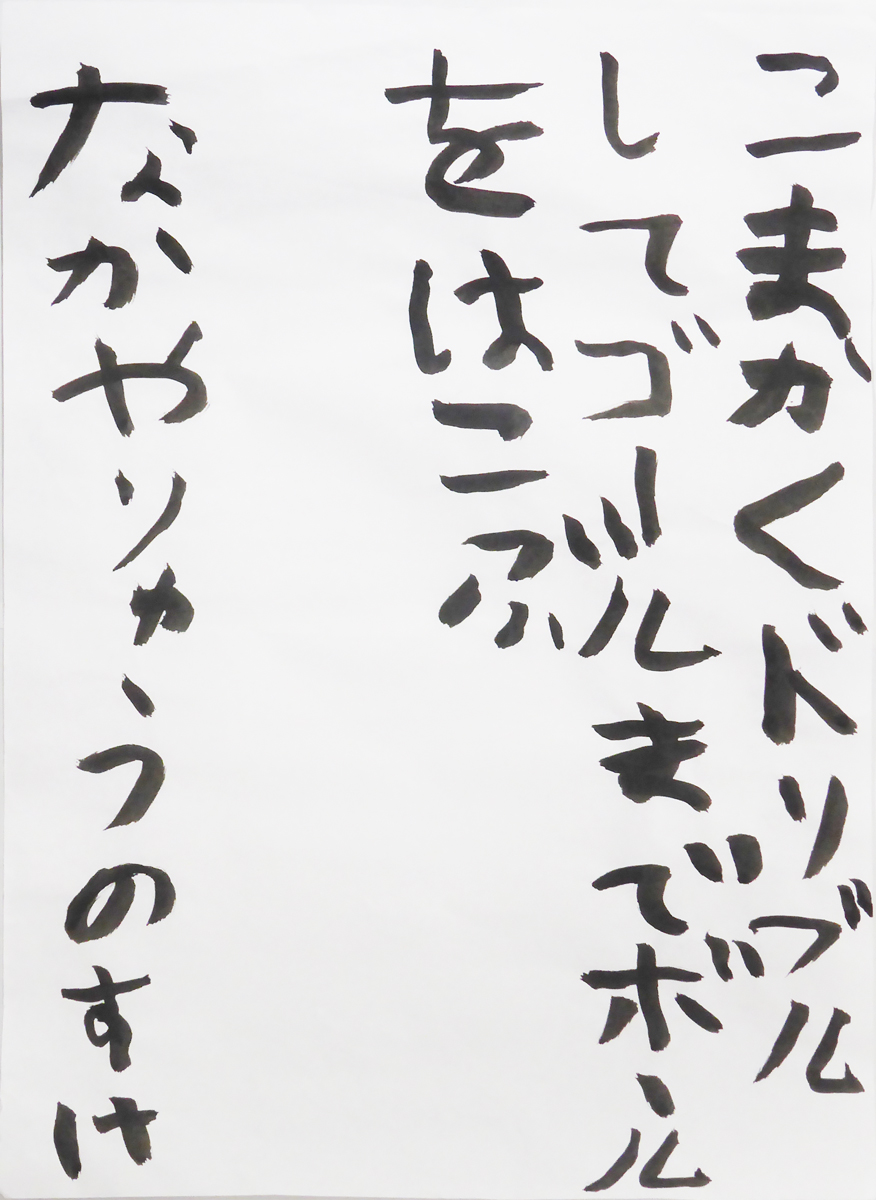 こまかくドリブル
してゴールまでボール
をはこぶ
なかやりゅうのすけ